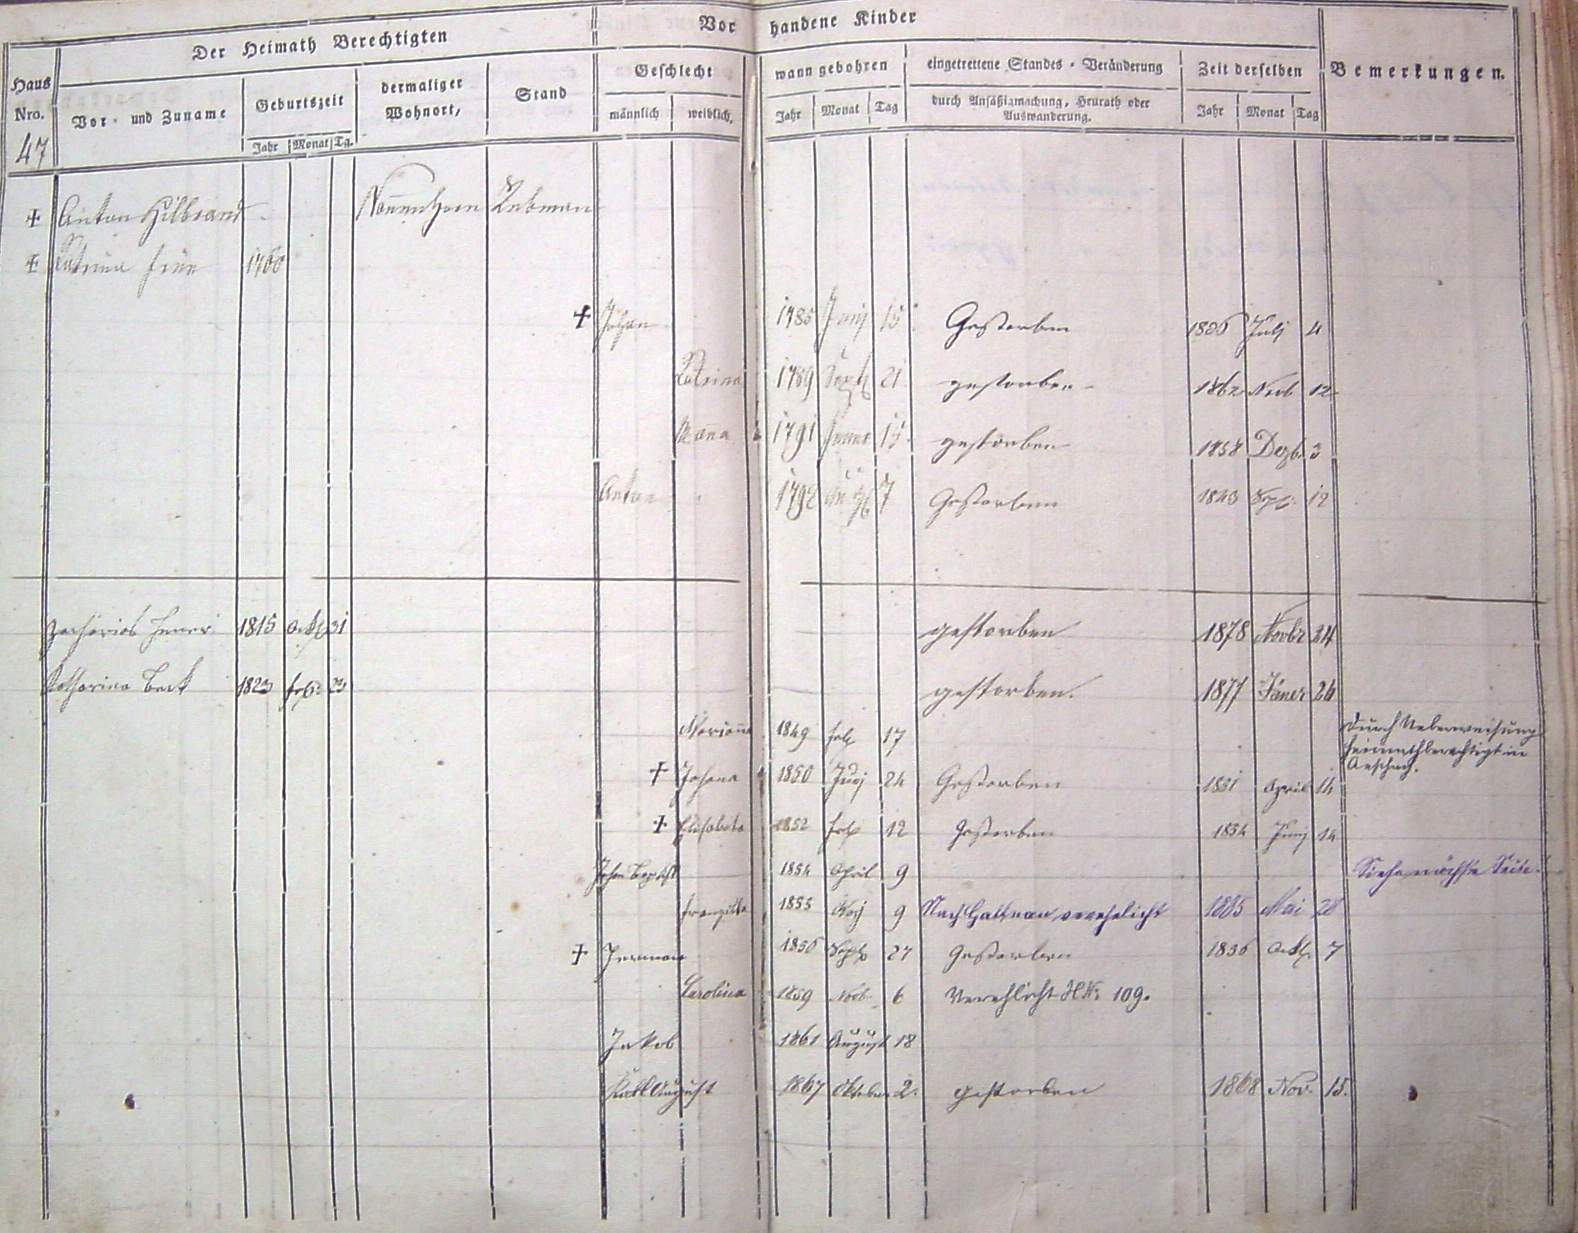 Der Heimath Berechtigten
Vorhandene Kinder
Haus Nro. 47
Vor- und Zuname
Geburtszeit
Jahr Monat Tg.
dermaliger Wohnort,
Stand
Geschlecht
männlich weiblich,
wann gebohren
Jahr Monat Tag
eingetrettene Standes-Veränderung
durch Ansäßigmachung, Heurath oder
Auswanderung.
Zeit derselben
Jahr Monat Tag
Bemerkungen.
+ Anton Hilbrand Nonnenhorn Rebman
+ Katrina 1760
+ Johan 1785 Junij 15 Gestorben 1836 Julj 4
Katrina 1789 Sept 21 gestorben 1862 Novb 12
1791 Jener 15 gestorben 1858 Dezb. 3
Anton 1792 7 Gestorben 1843 Sept. 12
Zacharias 1815 Oktb 31 gestorben 1878 Novbr 24
Katharina Beck 1823 Feb. 23 gestorben. 1877 Jäner 26
Mariana 1849 Feb 17 Durch Ueberweisung
heimathberechtigt in
Aeschach.
+ Johana 1850 24 Gestorben 1851 April 14
+ Elisabeta 1852 Feb 12 Gestorben 1854 Junj 14
Johan Baptist 1854 April 9 Siehe nächste Seite!
Franziska 1855 Maj 9 Nach verehelicht 1885 Mai 28
+ Herman 1856 Sept 27 Gestorben 1856 Oktb. 7
Carolina 1859 Novb 6 Verehlicht H№ 109.
Jakob 1861 August 18
Karl August 1867 Oktober 2. gestorben 1868 Nov. 15.